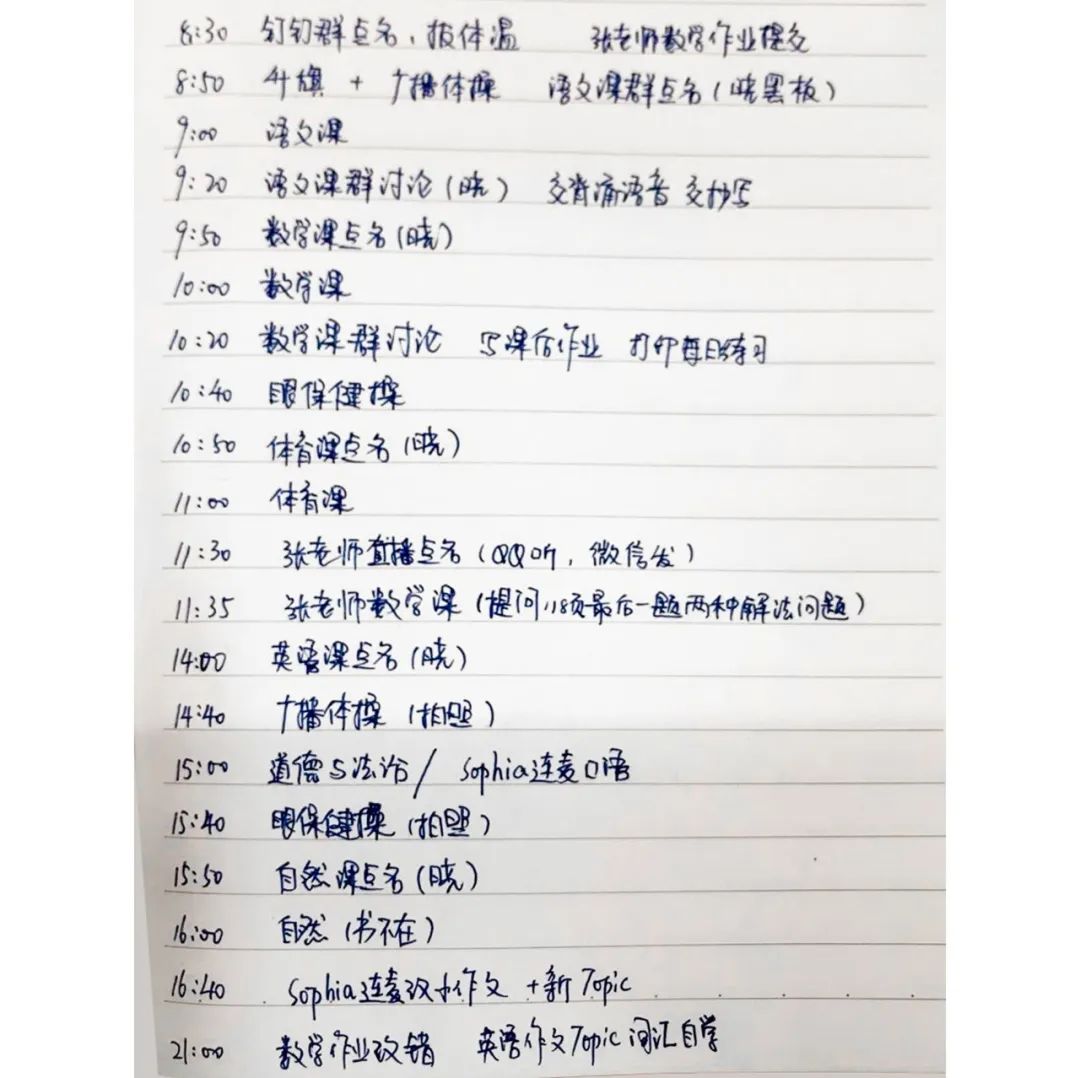 8:30 钉钉群点名、报体温 张老师数学作业提交
8:50 升旗 + 广播体操 语文课群点名(晓黑板)
9:00 语文课
9:20 语文课群讨论(晓) 交背诵语音 交抄写
9:50 数学课点名(晓)
10:00 数学课
10:20 数学课群讨论 写课后作业 打印每日练习
10:40 眼保健操
10:50 体育课点名(晓)
11:00 体育课
11:30 张老师直播点名(QQ听,微信发)
11:35 张老师数学课(提问118页最后一题两种解法问题)
14:00 英语课点名(晓)
14:40 广播体操(拍照)
15:00 道德与法治/ Sophia连麦口语
15:40 眼保健操(拍照)
15:50 自然课点名(晓)
16:00 自然(书不在)
16:40 Sophia连麦改小作文 +新Topic
21:00 数学作业改错 英语作文Topic词汇自学